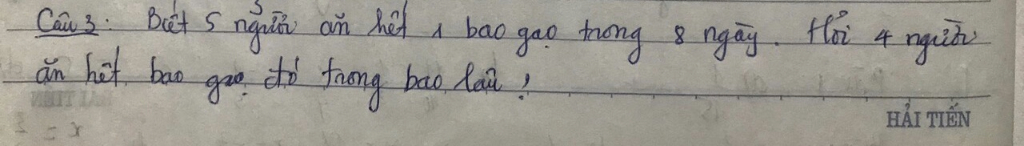 Câu 3: Biết 5 người ăn hết 1 bao gạo trong 8 ngày. Hỏi 4 người
ăn hết bao gạo đó trong bao lâu?
HẢI TIẾN